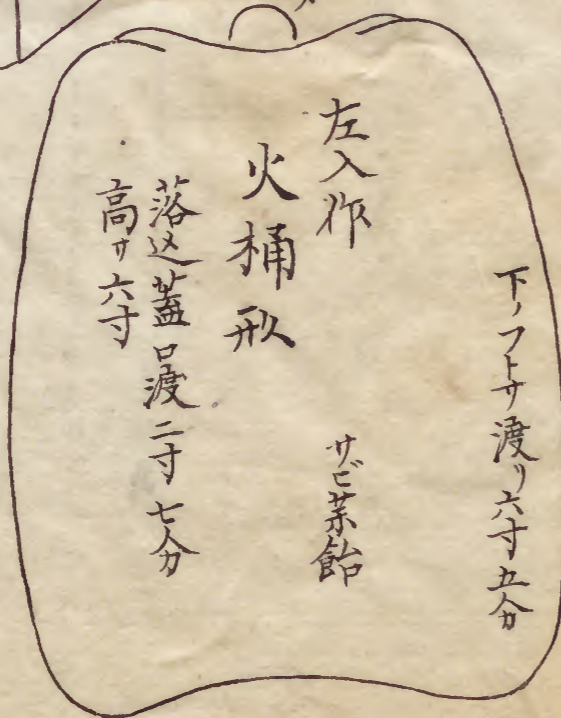 下ノフトサ渡リ六寸五分
左入作
サビ茶飴
火桶形
落込蓋口渡二寸七分
高サ六寸